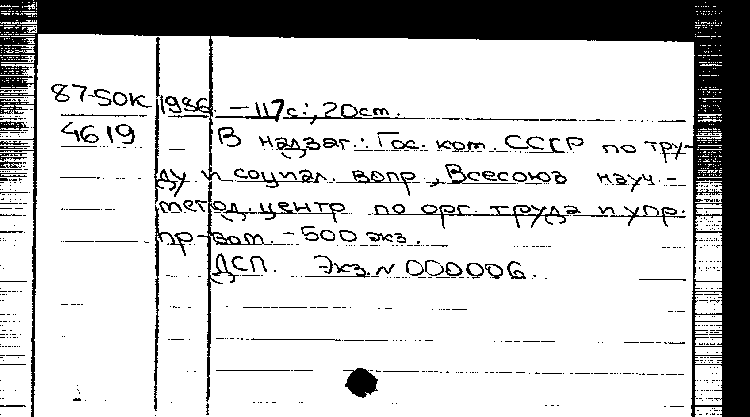 87-50К 1986. – 117с.; 20ст.
4619 В надзаг.: Гос. ком. СССР по тру-
ду и социал. вопр., Всесоюз науч.-
метод. центр по орг. труда и упр.
пр-вом. – 500 экз.
ДСП. Экз. N 000006.